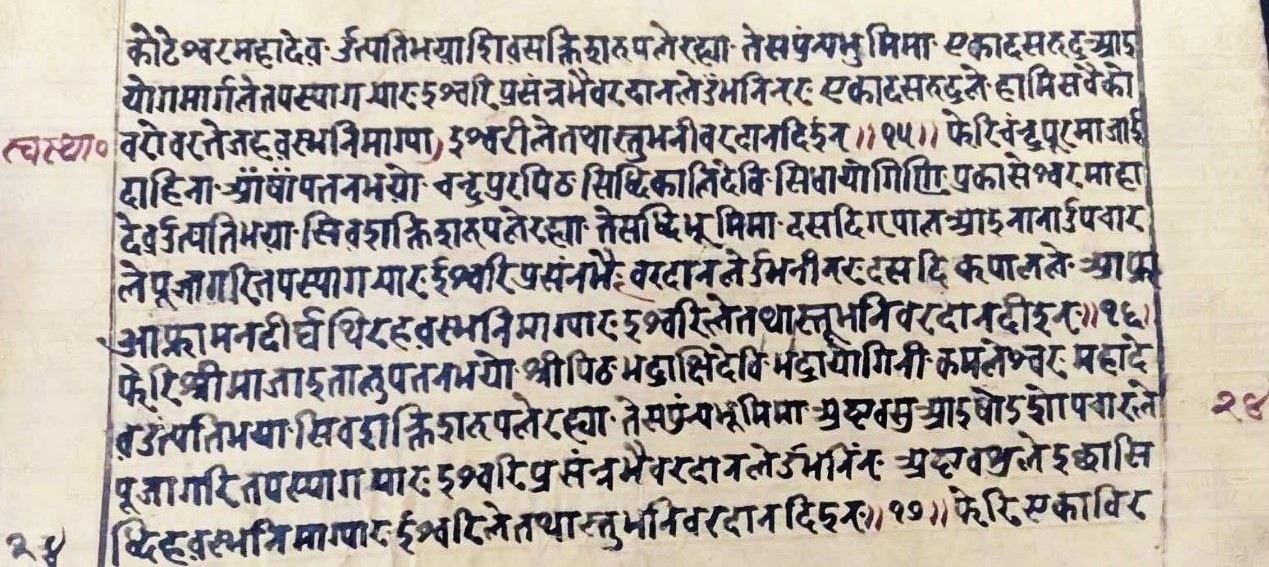 कोटेश्वरमहादेव उत्पतिभया शिवसक्तिद्वारुपले रह्या तेस पुंन्यभुमिमा एकादसरुद्र आइ
योगमार्गले तपस्या गर्‍यार इश्वरि प्रसंन्न भै वरदान लेउ भनिनर एकादसरुद्रले हामि सवैको
वरोवर तेज हवस् भनि माग्या, इश्वरीले तथास्तु भनी वरदान दिइन् ॥१५॥ फेरि चंन्द्रपूरमा जाई
दाहिना आँषाँ पतन भयो चन्द्रपुर पिठ सिद्धिकालि देवि सिवा योगिणि प्रकासेश्वर माहा
देव उत्पति भया सिवशक्तिद्वारुपले रह्या तेस धिभूमिमा दस दिगपाल आइ नाना उपचार
ले पूजा गरि तपस्या गर्‍यार ईश्वरि प्रसंन भै वरदान लेउ भनीनर दस दिकपालले आफ्ना
आफ्ना मन दीर्घ थिर हवस् भनि माग्यार इश्वरिले तथास्तू भनि वरदान दीइन् ॥१६॥
फेरि श्रीमा जाइ तालु पतन भयो श्रीपिठ भद्राक्षि देवि भद्रा योगिनी कमलेश्वर महादे
व उत्पति भया सिवशक्तिद्वारुपले रह्या तेस पुंन्यभूमिमा अष्टवसु आइ षोडशोपचारले
पूजा गरि तपस्या गर्‍यार इश्वरि प्रसंन्न भै वरदान लेउ भनिंन् अष्टवश्रुले इछासि
द्धि हवस् भनि माग्यार ईश्वरिले तथास्तु भनि वरदान दिइन् ॥१७॥ फेरि एकाविर
२४
२४